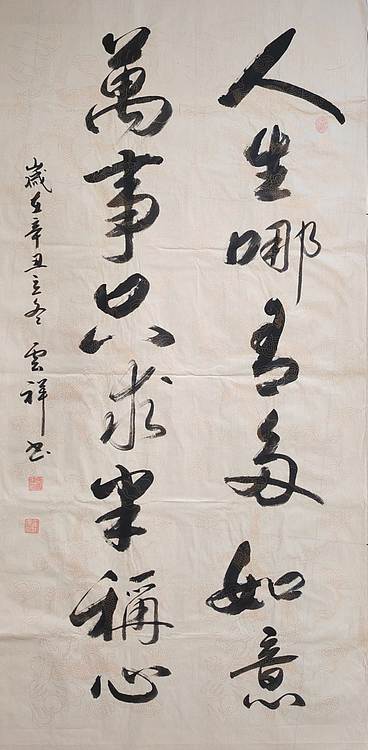 人生哪有多如意
萬事只求半稱心
歲在辛丑立冬 雲祥书